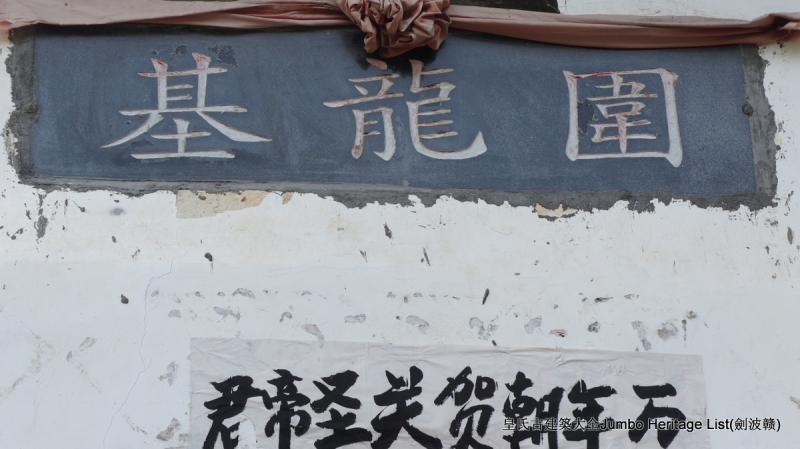 圍龍基
万年朝贺关圣帝君
皇氏古建築大全Jumbo Heritage List(劍波赣)